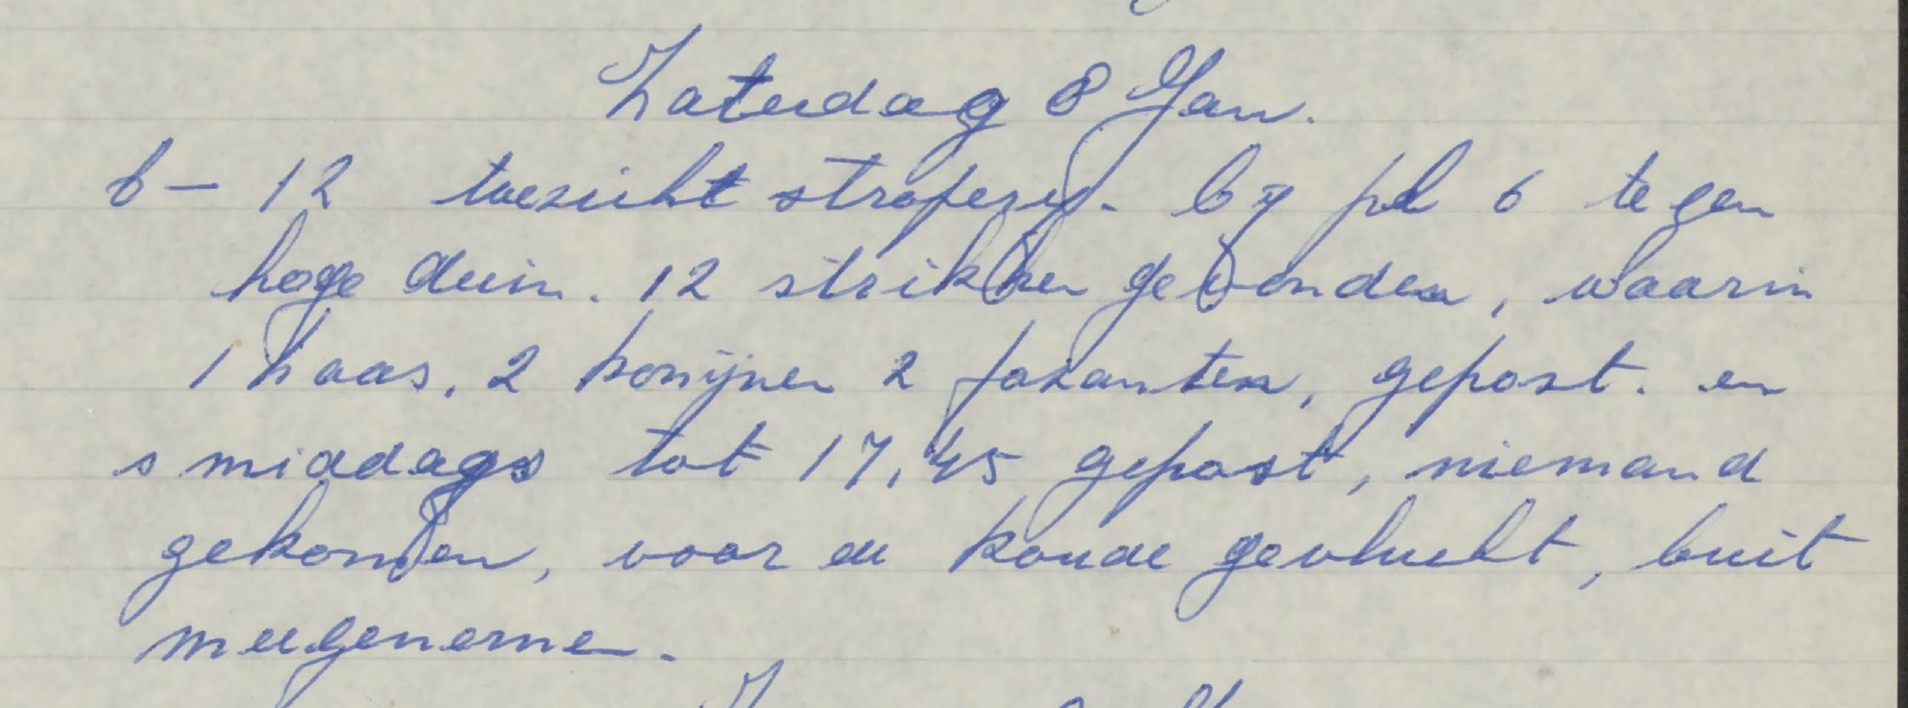 Zaterdag 8 Jan.
6 - 12 toezicht straperij. bij pl 6 tegen
hoge duin. 12 strikken gevonden, waarin
1 haas, 2 konijnen 2 fazanten, gepost. en
s middags tot 17,45 gepost, niemand
gekomen, voor de koude gevlucht, buit
meegenomen.